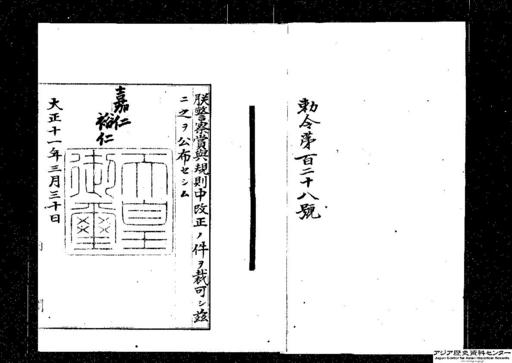 勅令第百二十八號
朕警察賞與規則中改正ノ件ヲ裁可シ茲
ニ之ヲ公布セシム
嘉仁
裕仁
天皇御璽
大正十一年三月三十日
アジア歴史資料センター
Japan Center for Asian Historical Records